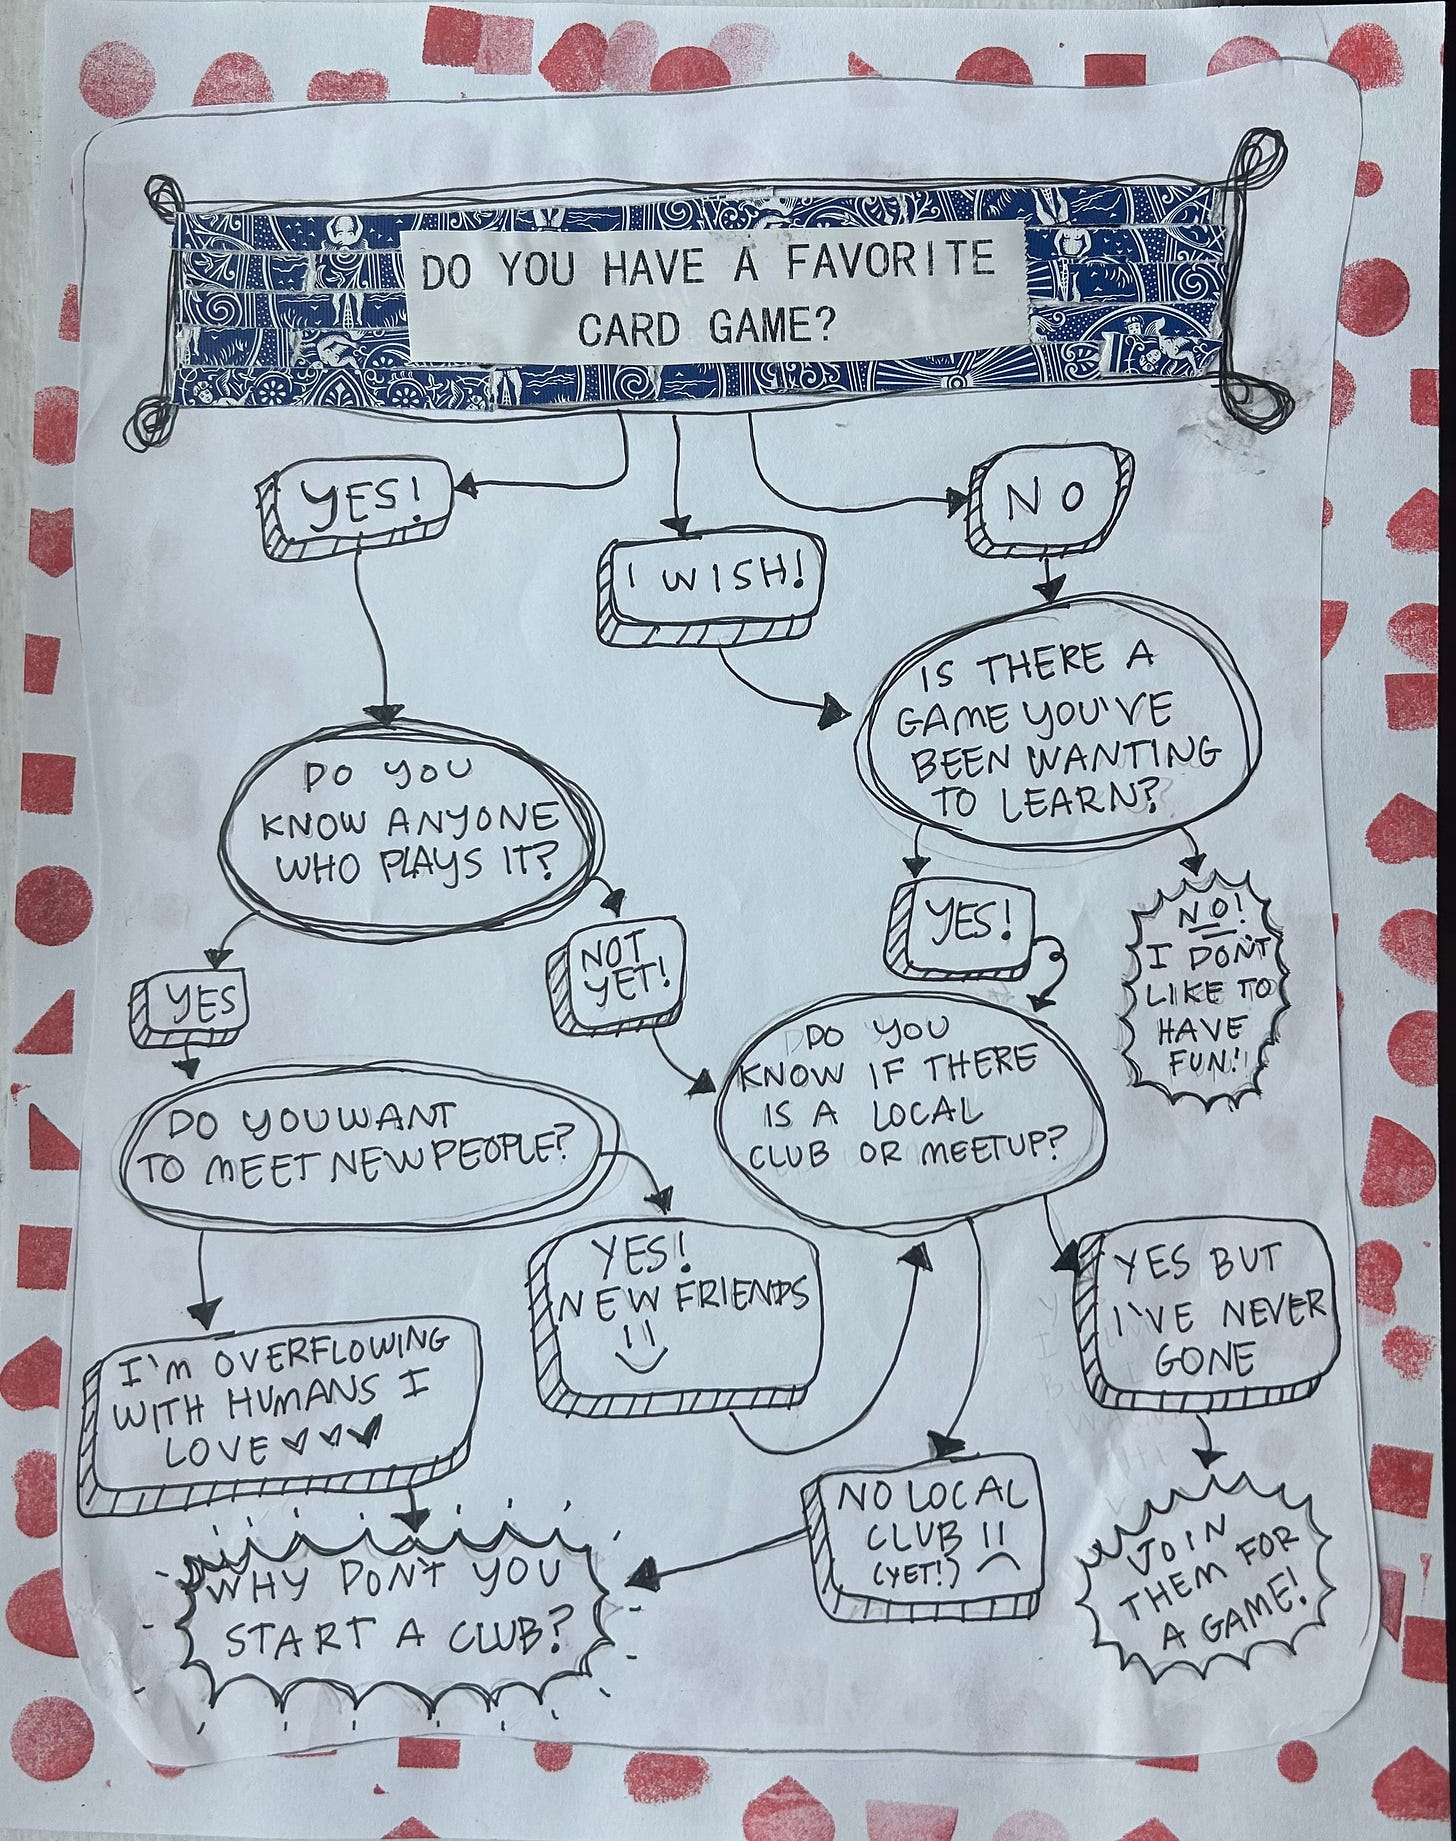 DO YOU HAVE A FAVORITE
CARD GAME?
YES!
I WISH!
NO
IS THERE A
GAME YOU'VE
BEEN WANTING
TO LEARN?
DO YOU
KNOW ANYONE
WHO PLAYS IT?
YES!
NO!
I DON'T
LIKE TO
HAVE
FUN!
NOT
YET!
YES
DO YOU
KNOW IF THERE
IS A LOCAL
CLUB OR MEETUP?
DO YOU WANT
TO MEET NEW PEOPLE?
YES!
NEW FRIENDS
YES BUT
I'VE NEVER
GONE
I'M OVERFLOWING
WITH HUMANS I
LOVE ♥♥♥
NO LOCAL
CLUB
(YET!)
WHY DON'T YOU
START A CLUB?
JOIN
THEM FOR
A GAME!